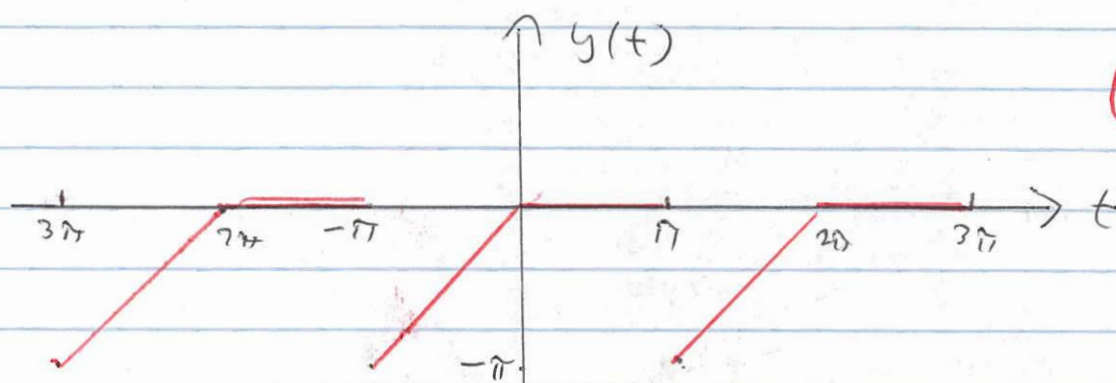 y(t)
3π 2π -π π 2π 3π t
-π